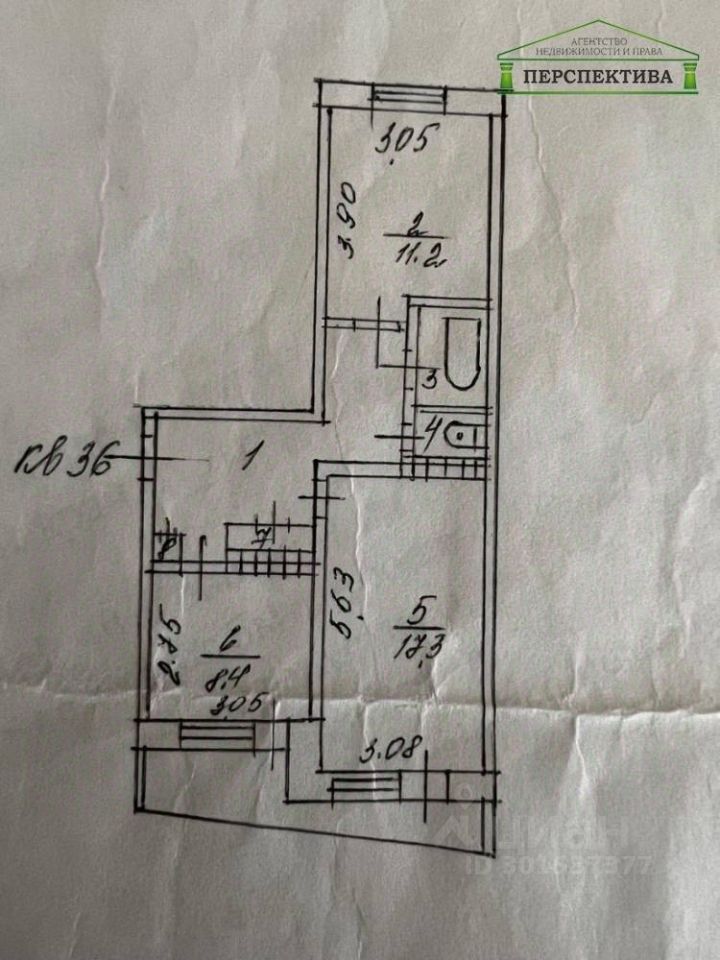 АГЕНТСТВО
НЕДВИЖИМОСТИ И ПРАВА
ПЕРСПЕКТИВА
3.05
3.90
2
11.2
3
4
кв 36
1
7
8
5.63
5
17.3
2.75
6
8.4
3.05
3.08
циан
ID 301637377